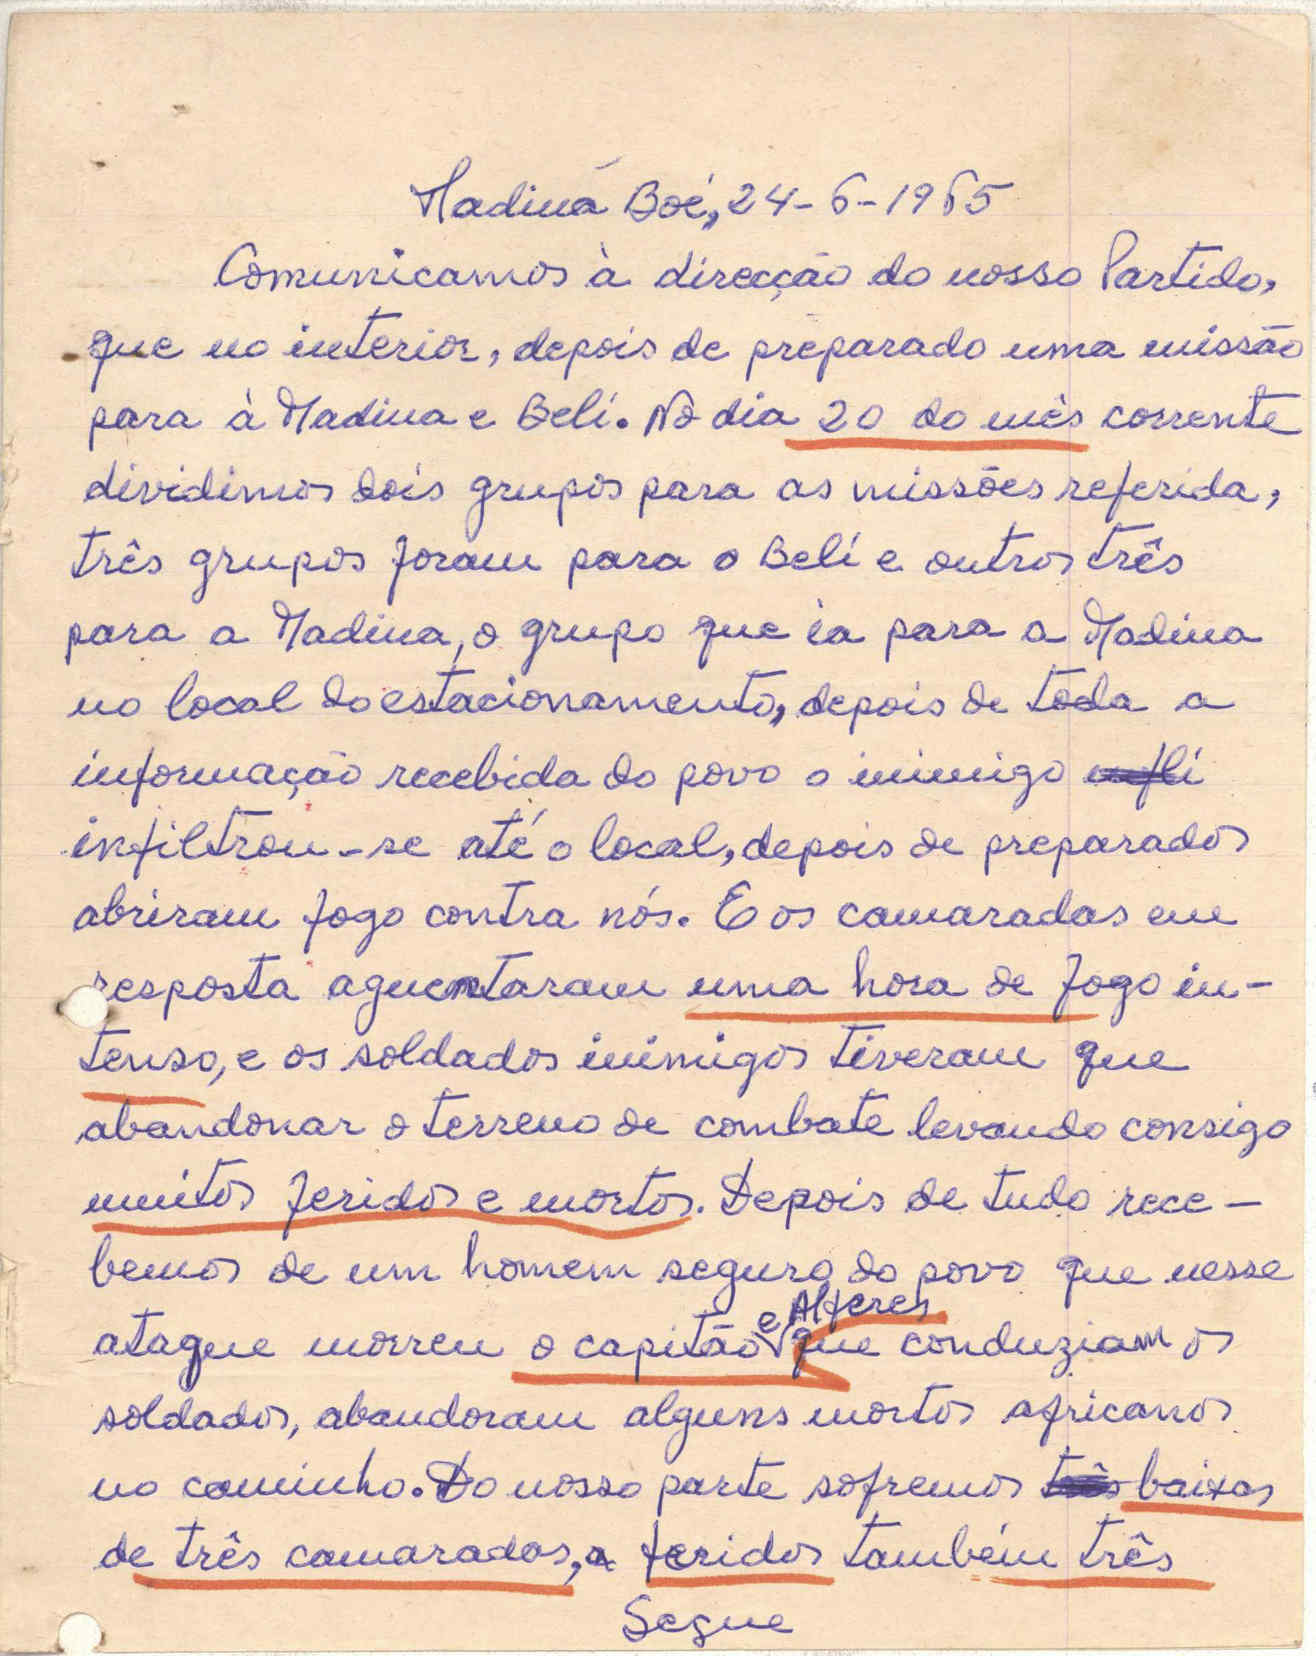 Madina Boé, 24-6-1965
Comunicamos à direcção do nosso Partido,
que no interior, depois de preparado uma missão
para à Madina e Beli. No dia 20 do mês corrente
dividimos dois grupos para as missões referida,
três grupos foram para o Beli e outros três
para a Madina, o grupo que ia para a Madina
no local do estacionamento, depois de toda a
informação recebida do povo o inimigo
infiltrou-se até o local, depois de preparados
abriram fogo contra nós. E os camaradas em
resposta aguentaram uma hora de fogo in-
tenso, e os soldados inimigos tiveram que
abandonar o terreno de combate levando consigo
muitos feridos e mortos. Depois de tudo rece-
bemos de um homem seguro do povo que nesse
ataque morreu o capitão e Alferes que conduziam os
soldados, abandoram alguns mortos africanos
no caminho. Do nosso parte sofremos baixas
de três camaradas, feridos também três
Segue